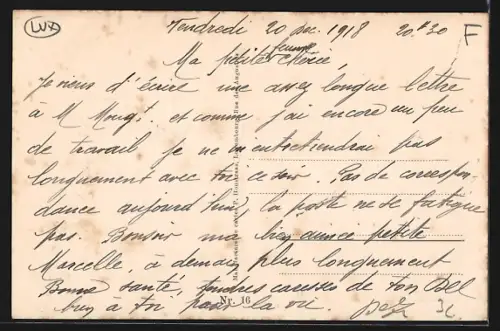 LUX
Vendredi 20 Dec. 1918 20h30
F
Ma petite femme chérie,
Je viens d'écrire une assez longue lettre
à M et comme j'ai encore un peu
de travail je ne m'entretiendrai pas
longuement avec toi ce soir. Pas de correspon-
dance aujourd'hui, la poste ne se fatigue
pas. Bonsoir ma bien aimée petite
Marcelle, à demain plus longuement
Bonne santé, tendres caresses de ton
bien à toi pour la vie.
Nr. 16